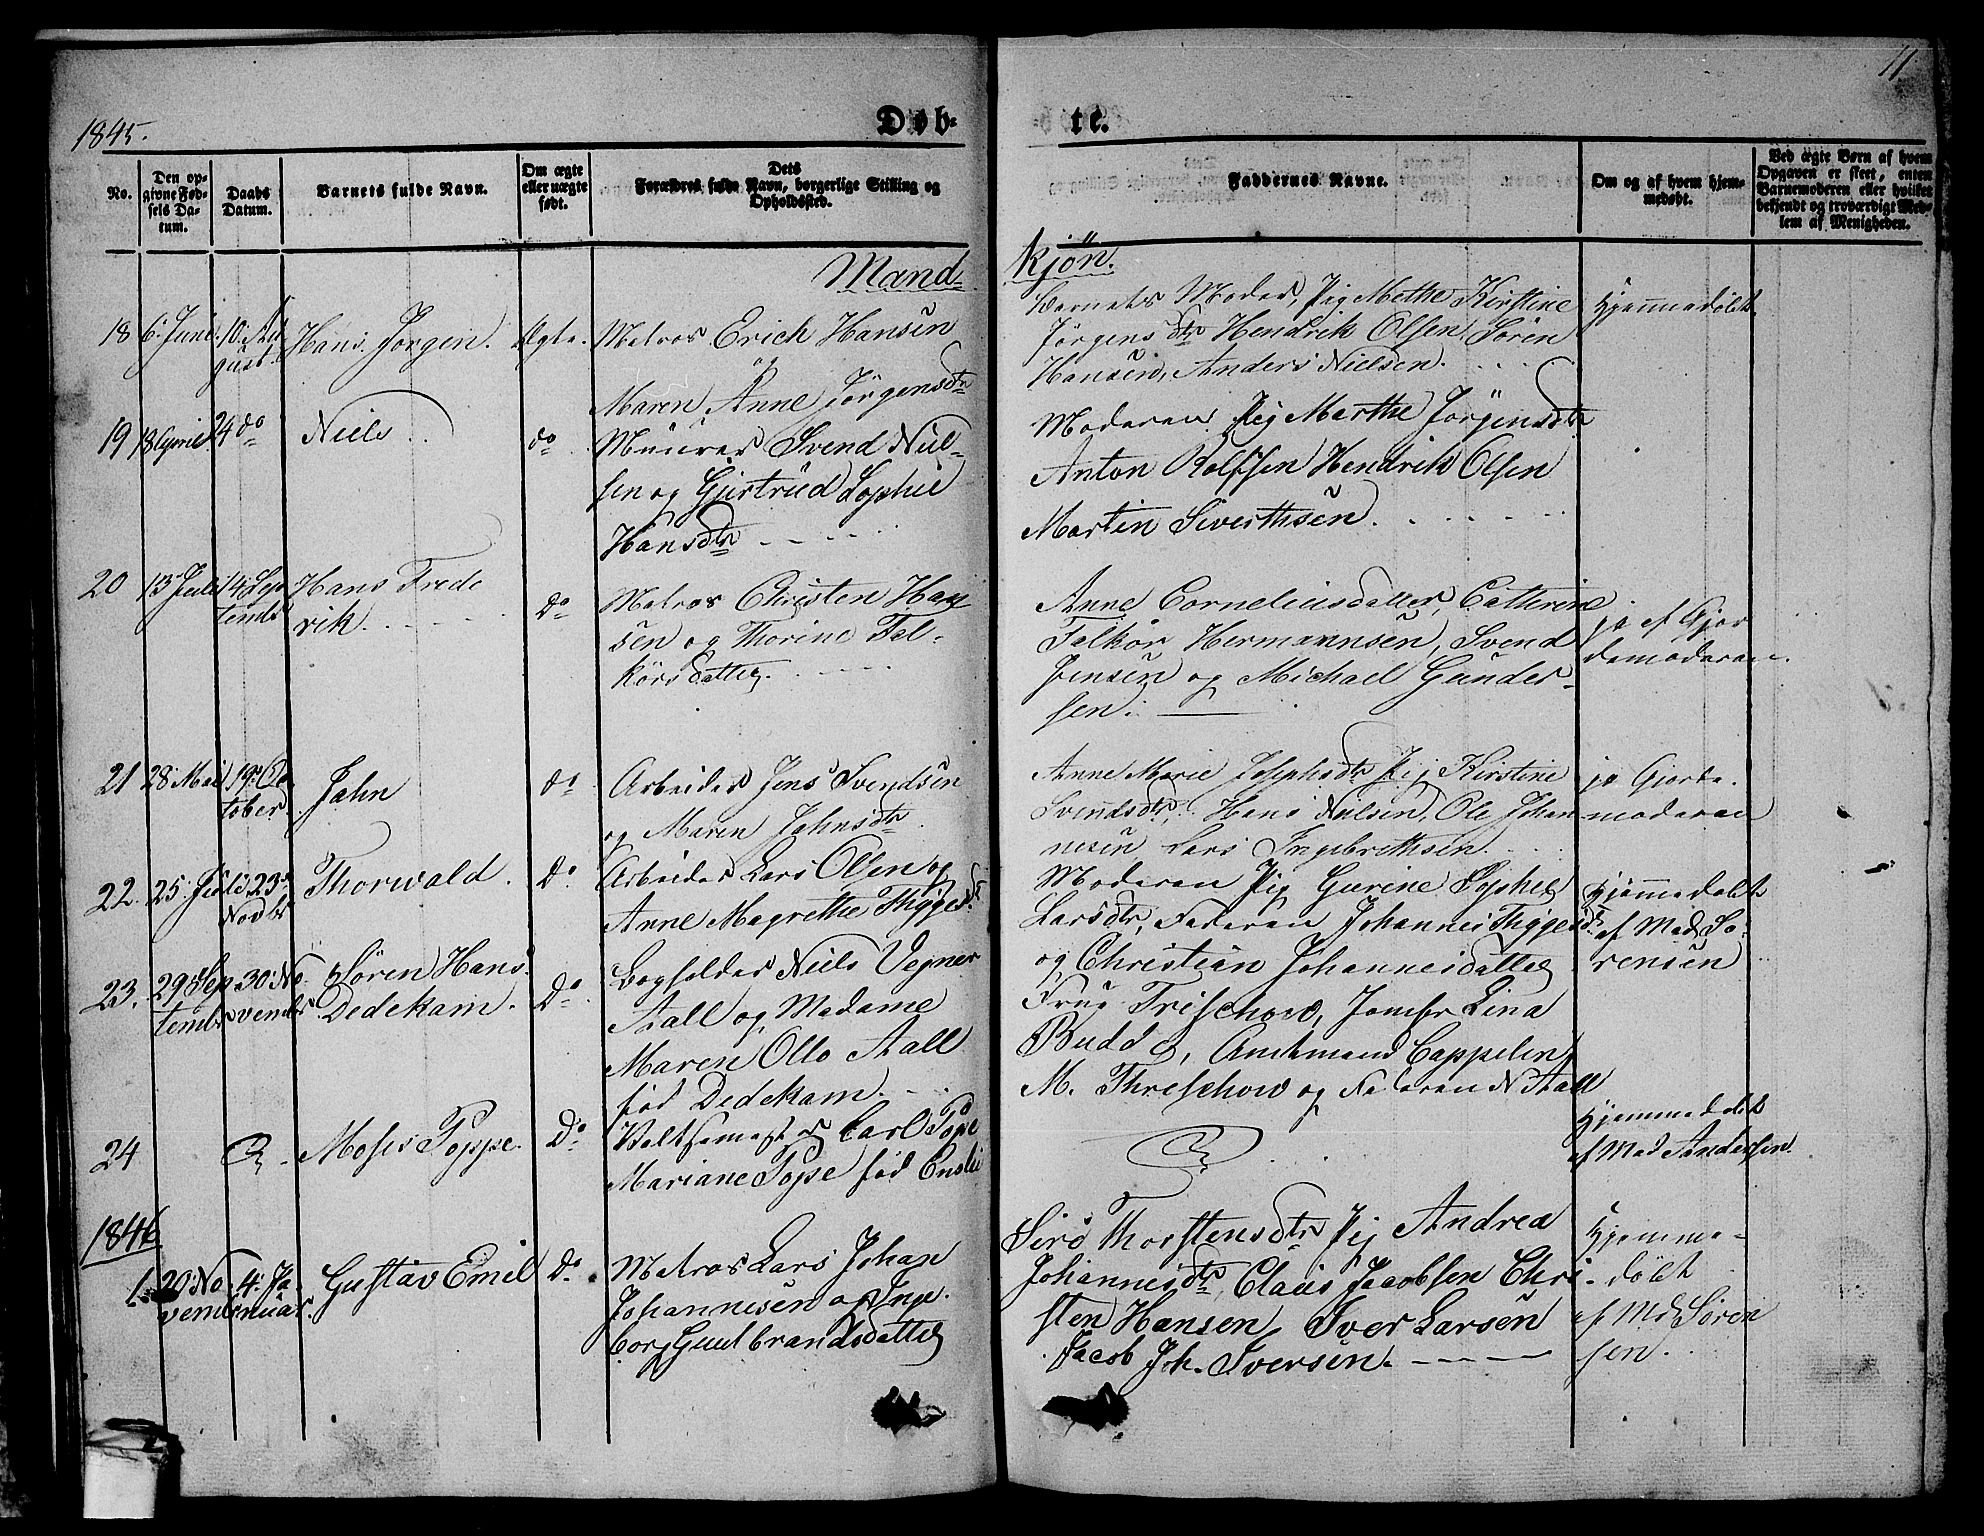 11
1845.
Døb-
te.
No.
Den op-
givne Fød-
sels Da-
tum.
Daabs
Datum.
Barnets fulde Navn.
Om ægte
eller uægte
født.
Dets
Forældres fulde Navn, borgerlige Stilling og
Opholdssted.
Faddernes Navne.
Om og af hvem hjem-
medøbt.
Ved ægte Børn af hvem
Opgaven er skeet, enten
Barnemoderen eller hvilket
bekjendt og troværdigt Med-
lem af Menigheden.
Mand-
kjøn.
18
6: Juni
10: Au
gust.
Hans Jørgen.
Ægte.
Matros Erich Hansen
og
Maren Anne Jörgensdtr
Barnets Moder, Pig Methe Kirstine
Jørgensdtr Hendrik Olsen, Søren
Hansen, Anders Nielsen.
Hjemmedøbt
19
18 April
24 do
Niels
do
Muurer Svend Niel-
sen og Gjertrud Sophie
Hansdtr
Moderen Pig Marthe Jörgensdtr
Anton Rolfsen Hendrik Olsen
Martin Siverthsen.
20
13 Juli
14: Sep
tembr
Hans Frede
rik
Do
Matros Christen Han
sen og Thorine Fal-
körsdatter.
Anne Corneliusdatter, Cathrine
Falkör Hermannsen, Svend
Jensen og Michael Gunder-
sen.
ja af Gjor
demoderen.
21
28: Mai
19: Oc
tober.
Jahn
do
Arbeider Jens Svendsen
og Maren Jahnsdtr
Anne Marie Josephsdtr Pig Kirstine
Svendsdtr, Hans Nielsen, Ole Johan
nesen Lars Ingebrethsen.
ja Gjorde-
moderen
22.
25. Juli
23:
Novbr
Thorwald.
Do
Arbeider Lars Olsen og
Anne Magrethe Thygesd.
Moderen Pig Gurine Sophie
Larsdtr, Faderen Johannes Thygesd.
og Christian Johannesdatter
Hjemmedøbt
af Mad So-
rensen
23.
29 Sep
tembr
30: No
vembr
Søren Hans
Dedekam.
Do
Bogholder Niels Vegner
Aall og Madame
Maren Olle Aall
fød Dedekam.
Frue Trischow, Jomfr Lina
Budde, Amtmand Cappelen,
M. Threschow og Faderen N Aall
24
Moses Poppe.
Do.
Carl Pope
Mariane Pope fød
Hjemmedøbt
af Mad Andersen.
1846
1.
20: No
vembr
4: Ja
nuar.
Gustav Emil
Do.
Matros Lars Johan
Johannesen og Inge-
borg Gulbrandsdatter
Siro Thorstensdtr Pig Andrea
Johannesdtr, Claus Jacobsen Chri-
sten Hansen, Iver Larsen
Jacob Joh. Iversen.
Hjemme-
døbt
af Md Søren
sen.